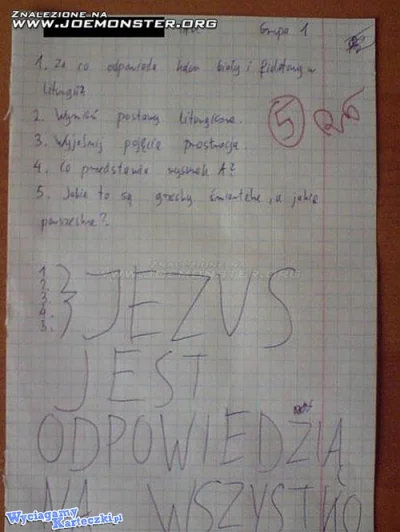 ZNALEZIONE NA
WWW.JOEMONSTER.ORG
Grupa 1
1. Za co odpowiada kolor biały i fioletowy w
liturgii?
2. Wymień postawy liturgiczne.
3. Wyjaśnij pojęcie prostracja.
4. Co przedstawia rysunek A?
5. Jakie to są grzechy śmiertelne, a jakie
powszednie?
5
ZNALEZIONE NA
WWW.JOEMONSTER.ORG
1.
2.
3.
4.
5.
JEZUS
JEST
ODPOWIEDZIĄ
NA WSZYSTKO
Wyciagamy
Karteczki.pl